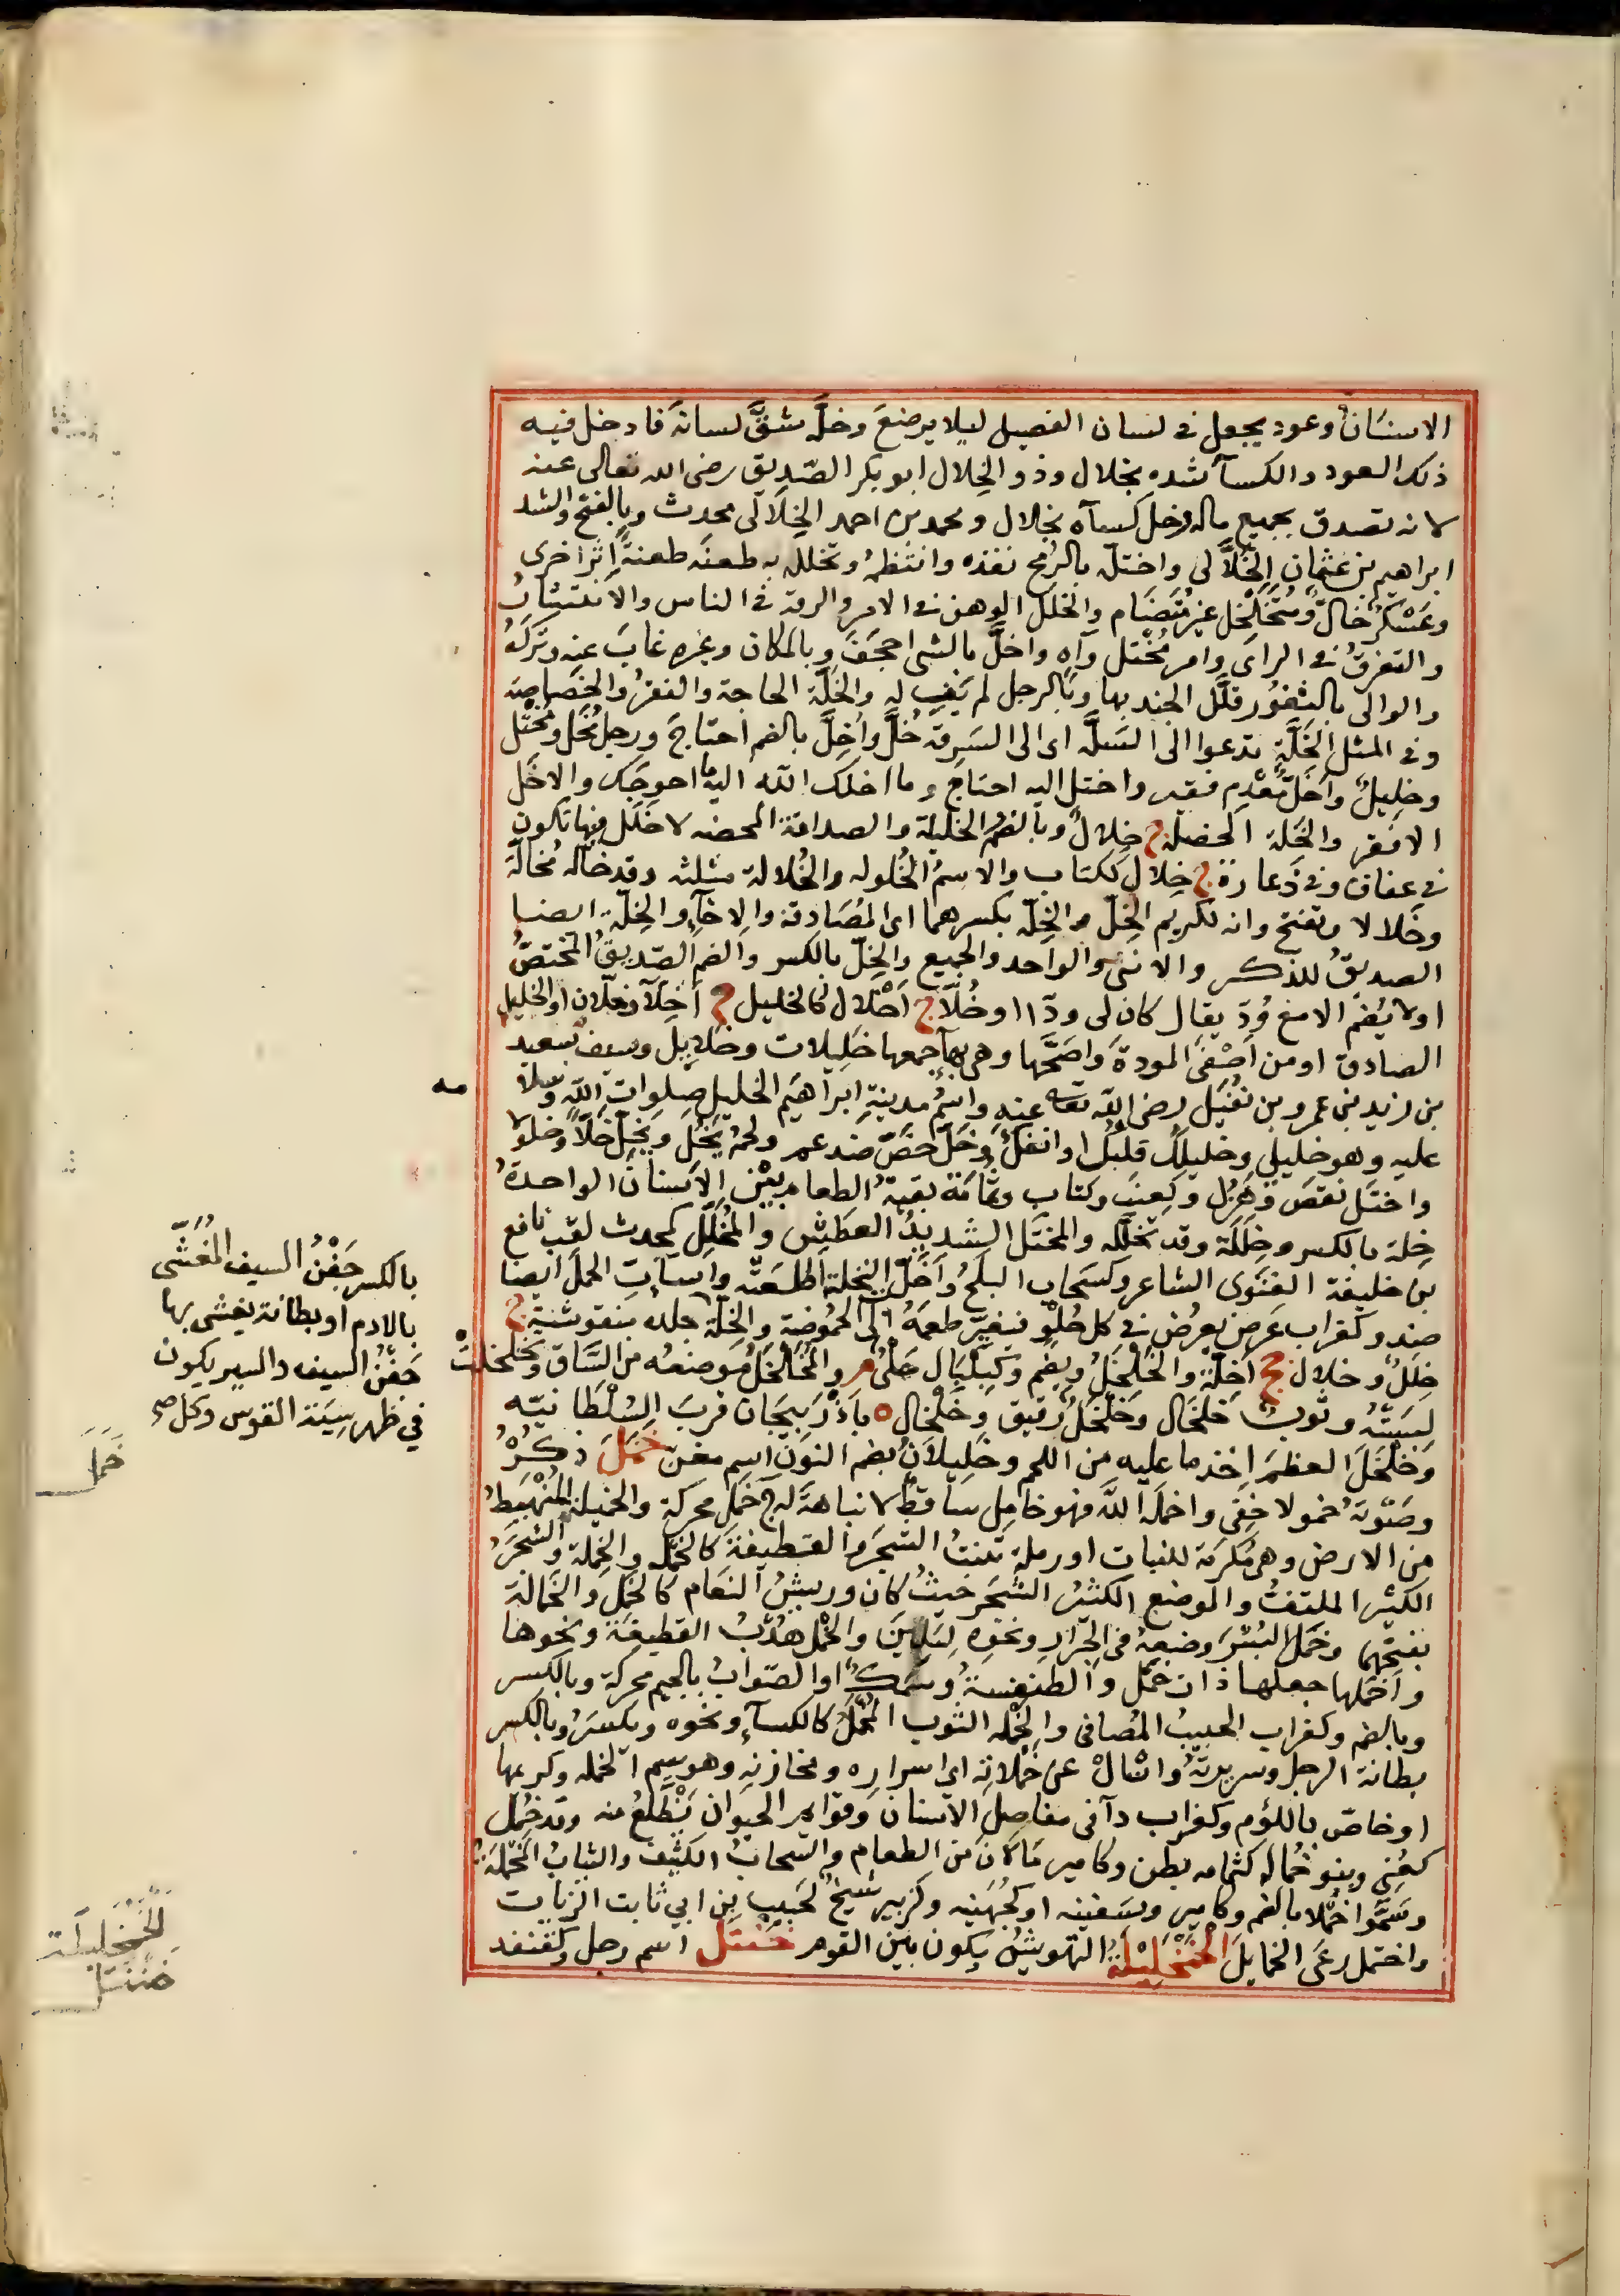 الاسنَان وعود يجعل في لسان الفصيل ليلا يرضعَ وخلَّه شقَّ لسانه فادخل فيه
ذلك العود والكسآ شده بخلال وذو الخِلال ابو بكر الصّدِيق رضى الله تعالى عنه
لانه تصدق بجميع ماله وخل كسآه بخلال ومحمد بن احمد الخِلَالى محدث وبالفتح والشد
ابراهيم بن عثمان الخَلَّالى واختلّه بالرُمح نفذه وانتظمُه وتخلله به طعنَه طعنةً اثر اخرى
وعَسْكر خالّ ومُتَخَلخِل غير مُتَضَام والخلل الوهن في الامر والرقة في الناس والانتشار
والتفرقُ في الراى وامر مُختل واهٍ واخلَّ بالشى احجَفَ وبالمكان وغيره غابَ عنه وتركه
والوالى بالثغُور قلَّل الجند بها وبالرجل لم يَفِ له والخَلّة الحاجة والفقرُ والخَصَاصة
وفى المثل الخَلّة تدعوا الى السَلّه اى الى السَرِقة خَلَّ واُخِلَّ بالضم احتاجَ ورجل مُخَل ومُختَل
وخليلٌ واَخَلُّ مُعْدِم فقير واختل اليه احتاج وما اخلك الله اليه ما احوجَك والاخَل
الافقر والخَلة الخصلة ج خِلالٌ وبالضم الخليلة والصداقة المحضه لا خلل فيها تكون
في عفاف وفى دَعارة ج خِلال ككتاب والاسمُ الخُلوله والخُلالة مثلثه وقد خالّه مُخالّة
وخِلالا ويفتح وانه لكريم الخِلّ والخِلّة بكسرهما اى المُصَادقة والاخآء والخِلّة ايضا
الصديقُ للذكر والانثى والواحد والجميع والخِلّ بالكسر والضم الصّديقُ المختصُّ
اولا يُضم الا مع وُدّ يقال كان لى ودّا وخُلّا ج اَخْلال كالخليل ج اَخِلّآ وخلّان او الخليل
الصادق او من اَصْفَى المودة واصَحَّها وهى بهآ جمعها خَلِيلات وخلايل وسيف سعيد
بن زيد بن عمرو بن نُفَيل رضى الله تعه عنه واسْمُ مدينةِ ابراهيم الخليل صلوات الله وسلا
مه
عليه وهو خليلي وخليلُك قلبك او انفك وخَلّ خصّ ضد عم ولحمُه يَخُل ويَخِل خَلّا وخلولا
واختل نقصَ وهُزِل وكعنب وكتاب وثُمَامَة بقية الطعام بين الاسنان الواحدةُ
خِلة بالكسر وخِلَلة وقد تخلّله والمختَلّ الشديدُ العطش والمُخَلِّل كمحدث لقب نافع
بن خليفة الغنَوى الشاعر وكسَحاب البلَحُ واَخَلّت النخلة اطلعَتْه واسآت الحمل ايضا
ضد وكغراب عَرض يعرض في كل حُلْوٍ فيغيّر طعمَهُ الى الحُموضَة والخِلّة جلده منقوشة ج
خِلَلٌ وخلال جج اَخِلّة والخَلخَلُ ويضم وكبَلْبَال حَلْىٌ م والمُخَلخَلُ موضعُه من السّاق وتَخَلخلت
لبسَتْه وثوب خلخَال وخَلْخَلٌ رقيق وخَلْخال ه باَذْرَبيجان قربَ السُلْطَانيّه
وخَلْخَلَ العظمَ اخذ ما عليه من اللحم وخَلِيلَانُ بضم النون اسم مغن خَمَلَ ذكرُه
وصَوْتهُ خمولا خَفِى واخملَه اللّه فهو خامِل ساقطٌ لا نباهة له ج خَمَل محركة والخميلة المُنْهَبَطُ
من الارض وهى مَكرمة للنبات او رملة تنبتُ الشجَر والقطيفة كالخَمْلة والخِملة والشَجَر
الكثير الملتفُّ والموضع الكثيرُ الشَجر حيثُ كان وريشُ النَعام كالخَمْل والخَمالة
بفتحهما وخَمَل البُسْرَ وضعَهُ في الجِرَارِ ونحوه لِيَلِينَ والخَمْل هُدْبُ القطيفَة ونحوها
واخمَلها جعلها ذات خَمْل والطنفسةُ وسَمَك اوالصّوابُ بالجيم محركة وبالكسر
وبالضم وكغراب الحبيبُ المُصافى والخَمْله الثوب المُخْمَلُ كالكسآءِ ونحوه ويكسَرُ وبالكسر
بطانة الرجل وسريرتُهُ واسْألْ عن خِمْلاتِه اى اسرارِه ومخازنِهِ وهو سيم الخمله وكريمها
او خاصّ باللؤم وكغراب دآ فى مفاصل الانسان وقوايم الحيوان يَظْلَعُ منه وقد خُمِل
كعُنِي وبنو خُماله كثمامه بطن وكامير مَا لَانَ من الطعام والسَحابُ الكثيف والثيابُ المُخْمَلَة
وسَمَّوا خُمْلا بالضم وكامير وسَفينه او كجُهَينه وكزبير شيخ لحبيب بن ابي ثابت الزيات
واختمل رعَى الخمايلَ الخَنْجَلِيلَةُ التهويشُ يكون بين القوم خَنْتَل اسم رجل وكقنفد
بالكسر جَفْنُ السيف المُغَشّى
بالادم او بطانة يغشى بها
جَفنُ السيف والسير يكون
في ظهر سِيَة القوس وكل صح
خَمَلَ
خَنْتَل